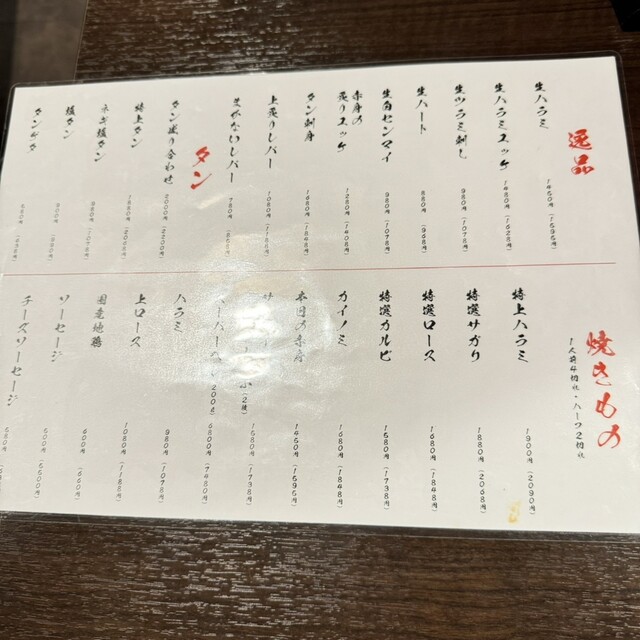 逸品
生ハラミ 1450円(1595円)
生ハラミユッケ 1480円(1628円)
生ツラミ刺し 980円(1078円)
生ハート 880円(968円)
生角センマイ 980円(1078円)
赤身の
炙りユッケ 1280円(1408円)
タン刺身 1680円(1848円)
上炙りレバー 1080円(1188円)
まかないレバー 780円(858円)
タン
タン盛り合わせ 2000円(2200円)
特上タン 1880円(2068円)
ネギ塩タン 980円(1078円)
塩タン 900円(990円)
タンギタ
焼きもの
1人前4切れ・ハーフ2切れ
特上ハラミ 1900円(2090円)
特選サガリ 1880円(2068円)
特選ロース 1680円(1848円)
特選カルビ 1580円(1738円)
カイノミ 1680円(1848円)
本日の赤身 1450円(1595円)
サ (2種) 1580円(1738円)
200g 6800円(7480円)
ハラミ 980円(1078円)
上ロース 1080円(1188円)
国産地鶏 600円(660円)
ソーセージ 500円(550円)
チーズソーセージ 580円